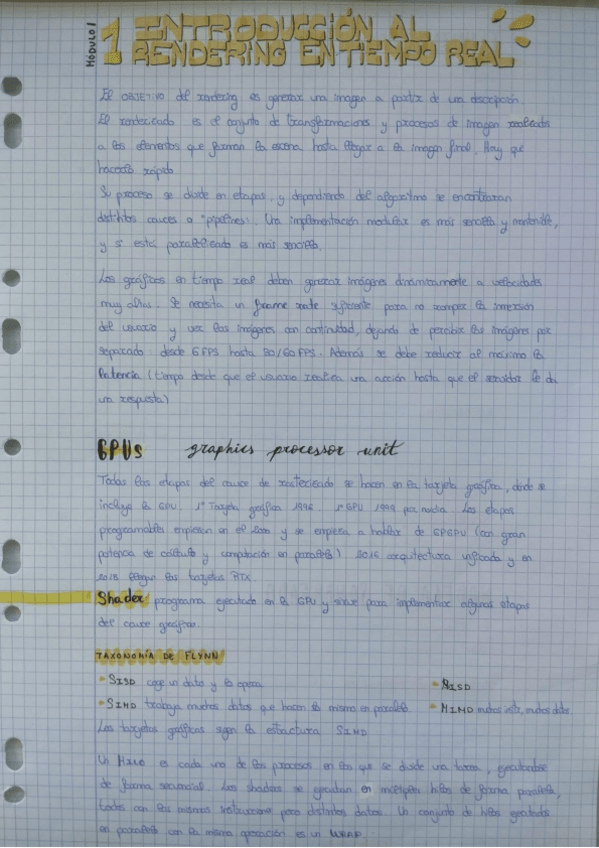 MÓDULO 1
1 INTRODUCCIÓN AL
RENDERING EN TIEMPO REAL
El OBJETIVO del rendering es generar una imagen a partir de una descripción.
El renderizado es el conjunto de transformaciones y procesos de imagen realizados
a los elementos que forman la escena hasta llegar a la imagen final. Hay que
hacerlo rápido
Su proceso se divide en etapas, y dependiendo del algoritmo se encontraran
distintos cauces o "pipelines". Una implementación modular es más sencilla y
y si está paralelizado es más sencillo.
Los gráficos en tiempo real deben generar imágenes dinámicamente a velocidades
muy altas. Se necesita un frame rate suficiente para no romper la inmersión
del usuario y ver las imágenes con continuidad, dejando de percibir las imágenes por
separado: desde 6 FPS hasta 30/60 FPS. Además se debe reducir al máximo la
latencia (tiempo desde que el usuario realiza una acción hasta que el servidor le da
una respuesta)
GPUs graphics processor unit
Todas las etapas del cauce de rasterizado se hacen en la tarjeta gráfica, donde se
incluye la GPU. 1ª Tarjeta gráfica 1996. 1ª GPU 1999 por nvidia. Las etapas
programables empiezan en el 2001 y se empieza a hablar de GPGPU (con gran
potencia de cálculo y computación en paralelo) 2016 arquitectura unificada y en
2018 llegan las tarjetas RTX.
Shader programa ejecutado en la GPU y sirve para implementar algunas etapas
del cauce gráfico.
TAXONOMÍA DE FLYNN
• SISD coge un dato y lo opera
• MISD
• SIMD trabaja muchos datos que hacen lo mismo en paralelo
• MIMD muchas inst, muchos datos
Las tarjetas gráficas siguen la estructura SIMD
Un HILO es cada uno de los procesos en los que se divide una tarea, ejecutandose
de forma secuencial. Los shaders se ejecutan en múltiples hilos de forma paralela,
todos con las mismas instrucciones para distintos datos. Un conjunto de hilos ejecutados
en paralelo con la misma operación es un WRAP.